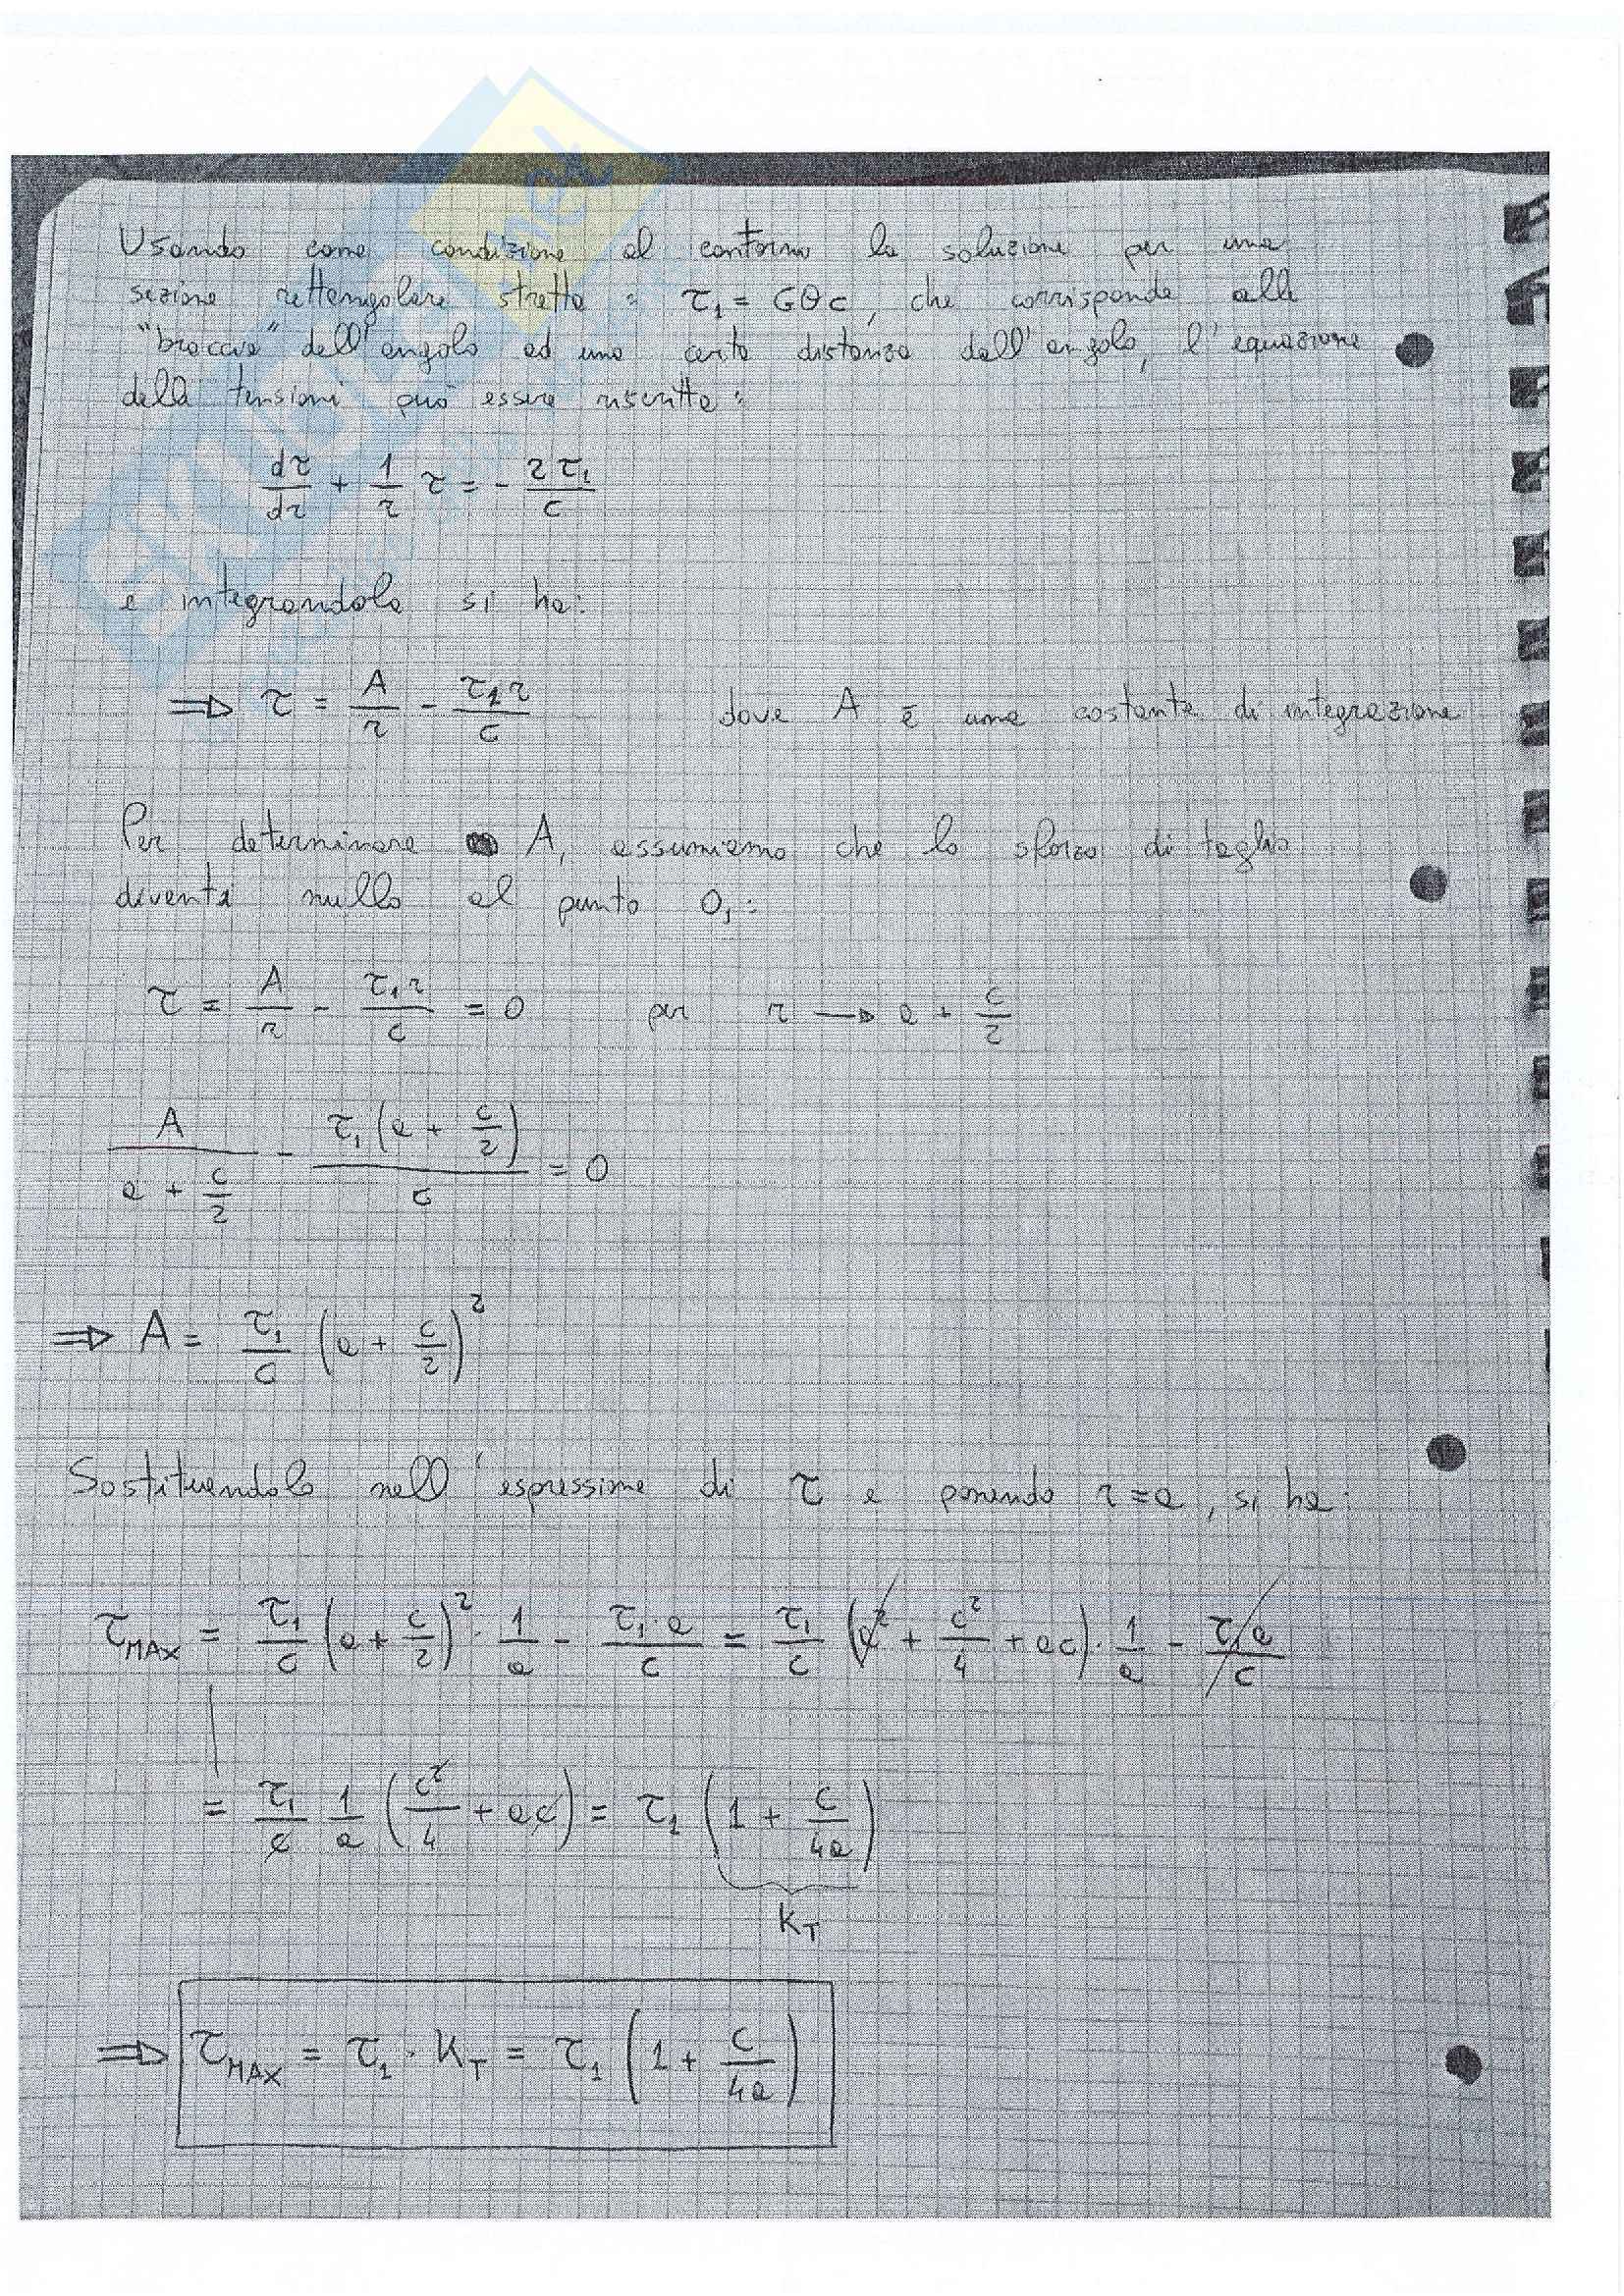 Usando come condizione al contorno la soluzione per una
sezione rettangolare stretta : τ₁ = GΘc, che corrisponde alle
"braccia" dell'angolo ad una certa distanza dall'angolo, l'equazione
della tensioni può essere riscritta :
dτ/dr + 1/r τ = - 2τ₁/c
e integrandola si ha:
⇒ τ = A/r - τ₁r/c dove A è una costante di integrazione
Per determinare A, assumiamo che lo sforzo di taglio
diventi nullo al punto O₁ :
τ = A/r - τ₁r/c = 0 per r → a + c/2
A/(a + c/2) - τ₁(a + c/2)/c = 0
⇒ A = τ₁/c (a + c/2)²
Sostituendolo nell'espressione di τ e ponendo r=a, si ha:
τMAX = τ₁/c (a + c/2)² · 1/a - τ₁·a/c = τ₁/c (a² + c²/4 + ac) · 1/a - τ₁a/c
= τ₁/c 1/a (c²/4 + ac) = τ₁ (1 + c/4a)
KT
⇒ τMAX = τ₁ · KT = τ₁ (1 + c/4a)